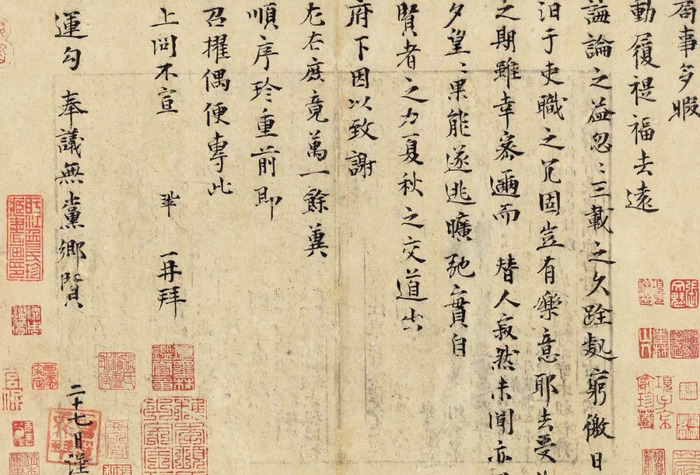 局事多暇
動履禔福去遠
誨論之益忽〻三載之久跧處窮徼日
汩于吏職之冗固豈有樂意耶去受
之期雖幸密邇而替人寂然未聞亦
夕望〻果能遂逃曠弛實自
賢者之力夏秋之交道出
府下因以致謝
左右庶竟萬一餘冀
順序珍重前即
召擢偶便專此
上問不宣 鞏再拜
運勾奉議無黨鄉賢
二十七日謹
項子京家珍藏